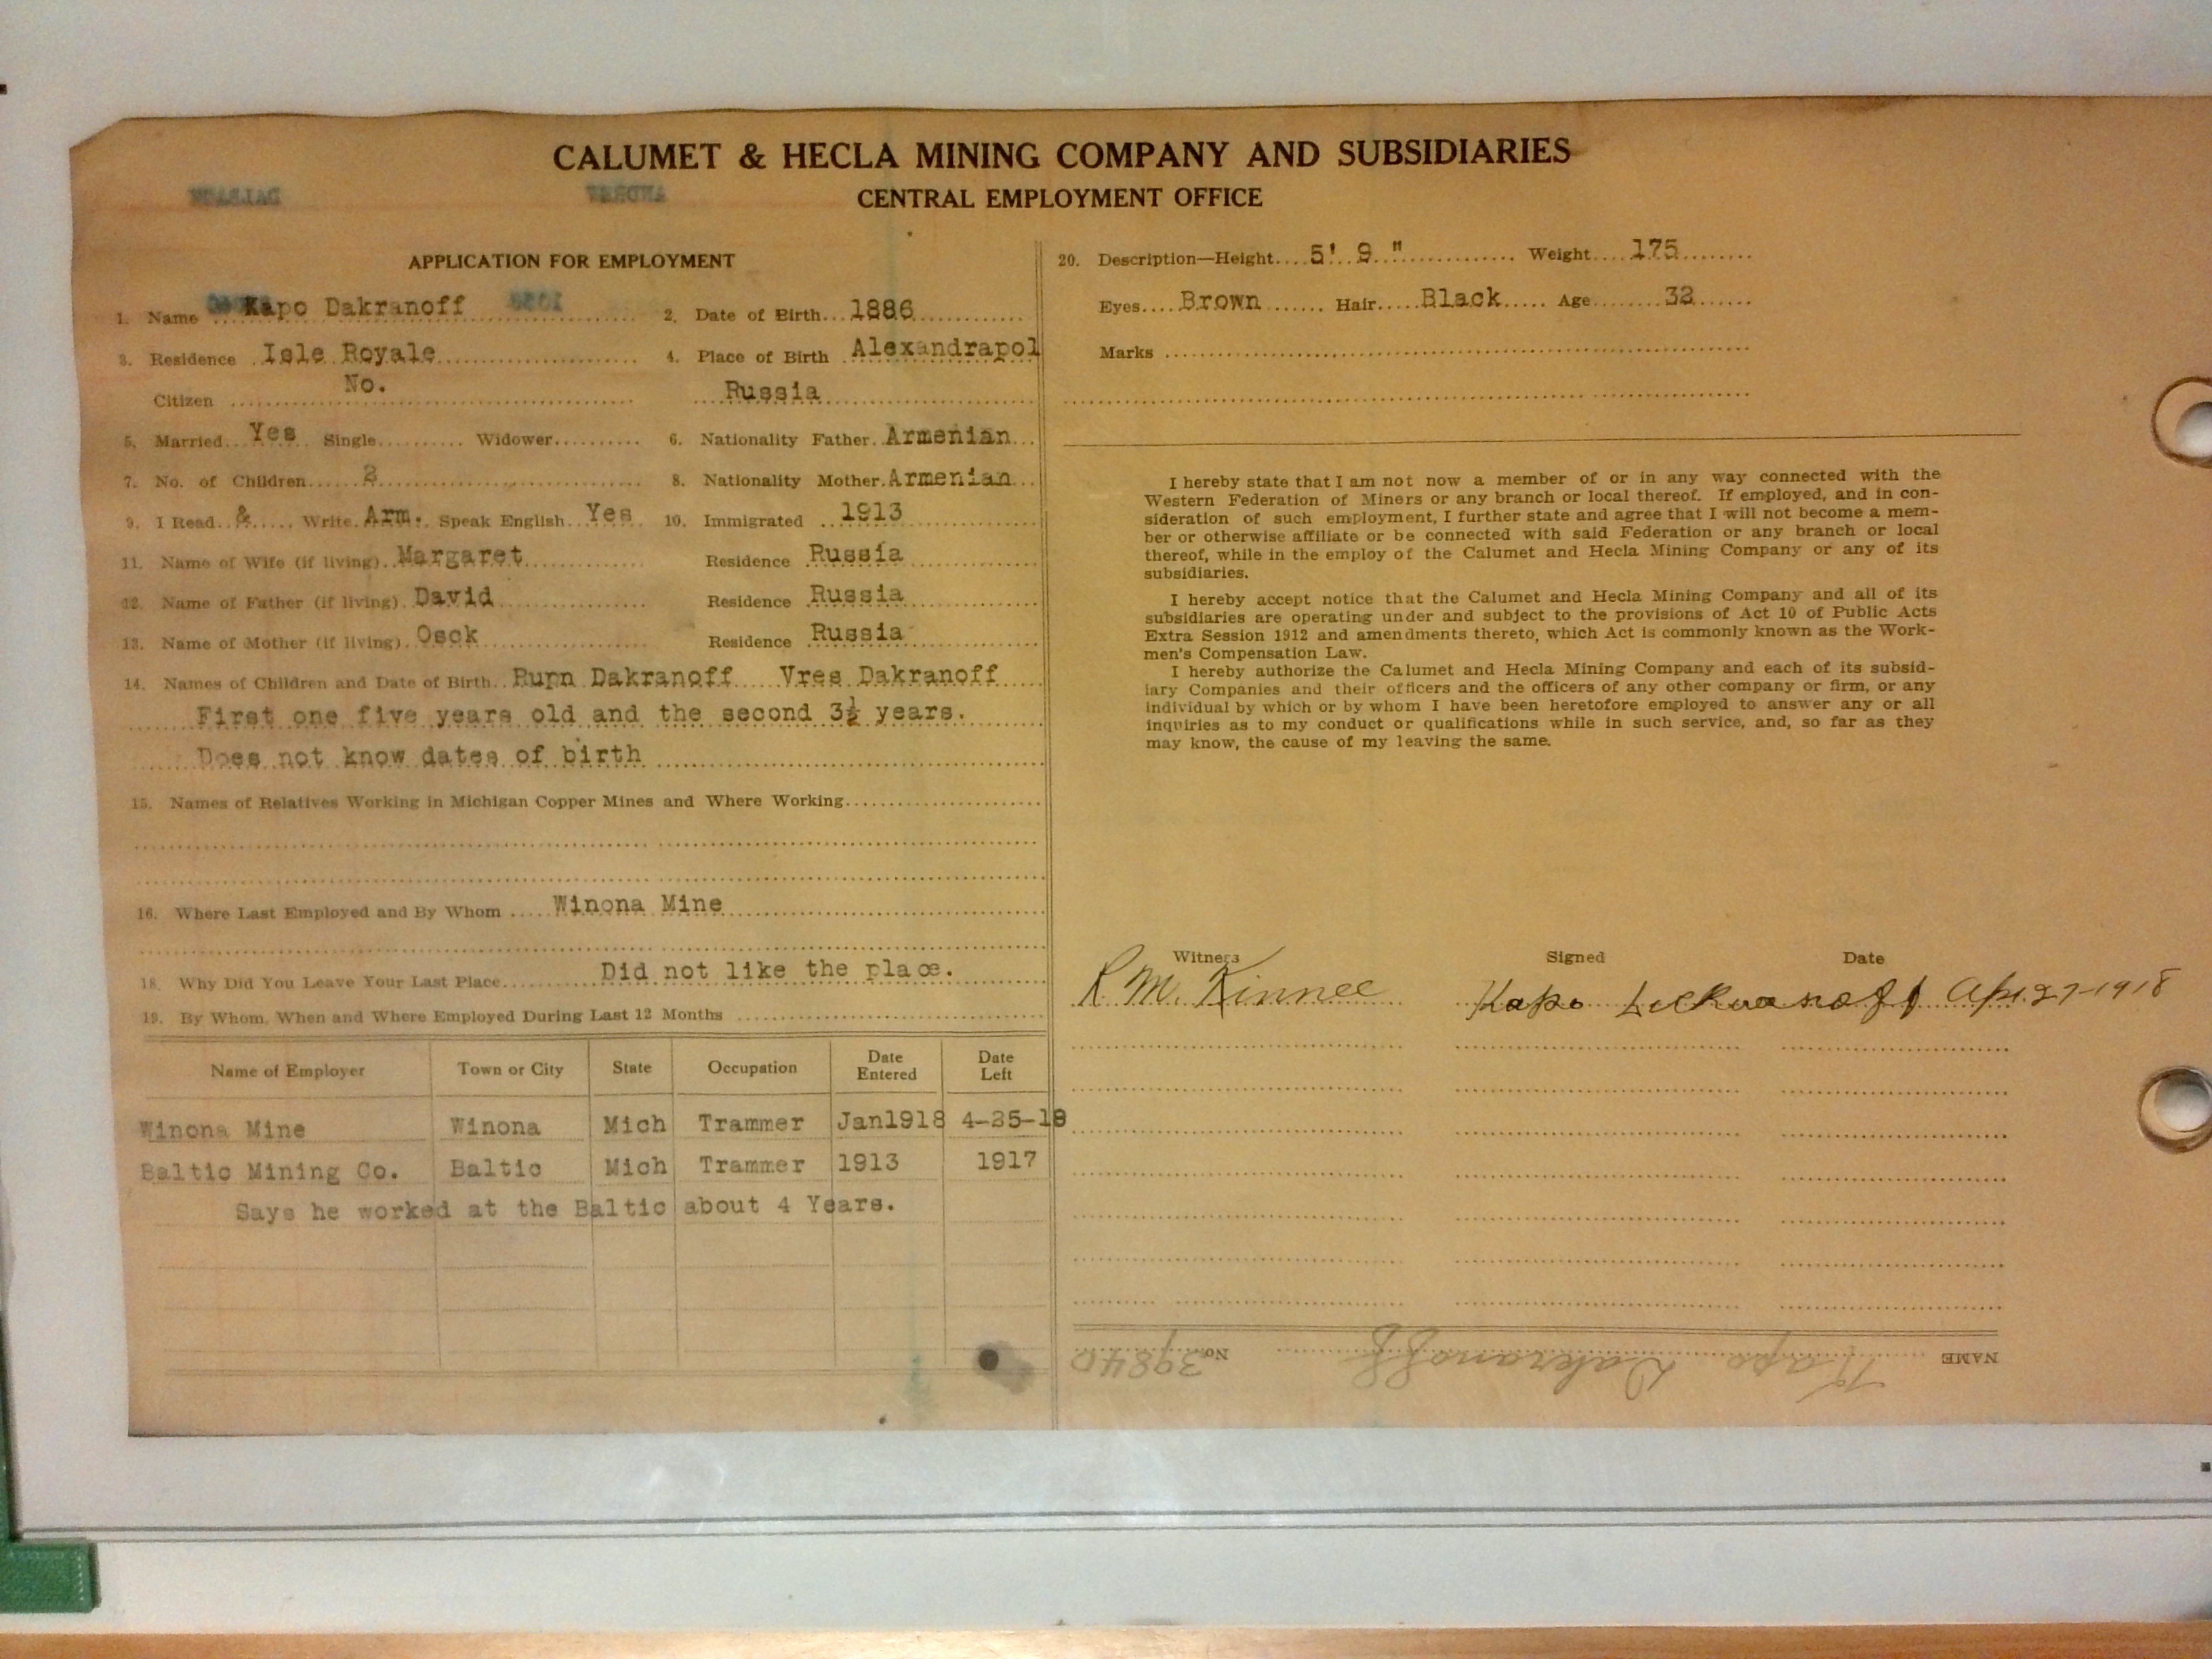 CALUMET & HECLA MINING COMPANY AND SUBSIDIARIES
CENTRAL EMPLOYMENT OFFICE
APPLICATION FOR EMPLOYMENT
1. Name Kapo Dakranoff 2. Date of Birth 1886
3. Residence Isle Royale 4. Place of Birth Alexandrapol
Citizen No. Russia
5. Married Yes Single Widower 6. Nationality Father Armenian
7. No. of Children 2 8. Nationality Mother Armenian
9. I Read & Write Arm. Speak English Yes 10. Immigrated 1913
11. Name of Wife (if living) Margaret Residence Russia
12. Name of Father (if living) David Residence Russia
13. Name of Mother (if living) Osok Residence Russia
14. Names of Children and Date of Birth Rupn Dakranoff Vres Dakranoff
First one five years old and the second 3½ years.
Does not know dates of birth
15. Names of Relatives Working in Michigan Copper Mines and Where Working
16. Where Last Employed and By Whom Winona Mine
18. Why Did You Leave Your Last Place Did not like the place.
19. By Whom, When and Where Employed During Last 12 Months
Name of Employer Town or City State Occupation Date Entered Date Left
Winona Mine Winona Mich Trammer Jan1918 4-25-18
Baltic Mining Co. Baltic Mich Trammer 1913 1917
Says he worked at the Baltic about 4 Years.
20. Description—Height 5' 9" Weight 175
Eyes Brown Hair Black Age 32
Marks
I hereby state that I am not now a member of or in any way connected with the
Western Federation of Miners or any branch or local thereof. If employed, and in con-
sideration of such employment, I further state and agree that I will not become a mem-
ber or otherwise affiliate or be connected with said Federation or any branch or local
thereof, while in the employ of the Calumet and Hecla Mining Company or any of its
subsidiaries.
I hereby accept notice that the Calumet and Hecla Mining Company and all of its
subsidiaries are operating under and subject to the provisions of Act 10 of Public Acts
Extra Session 1912 and amendments thereto, which Act is commonly known as the Work-
men's Compensation Law.
I hereby authorize the Calumet and Hecla Mining Company and each of its subsid-
iary Companies and their officers and the officers of any other company or firm, or any
individual by which or by whom I have been heretofore employed to answer any or all
inquiries as to my conduct or qualifications while in such service, and, so far as they
may know, the cause of my leaving the same.
Witness Signed Date
R. M. Kinnee Kapo Apr. 27-1918
NAME Kapo Dakranoff No. 39840